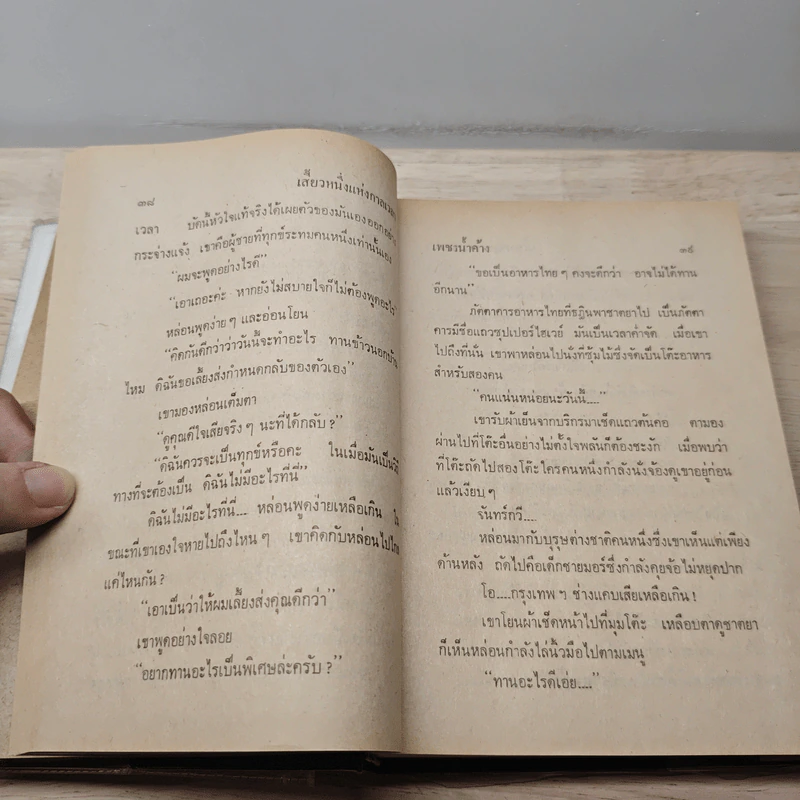 ๓๘
เสี้ยวหนึ่งแห่งกาลเวลา
เวลา บัดนี้หัวใจแท้จริงได้เผยตัวของมันเองออกอย่าง
กระจ่างแจ้ง เขาคือผู้ชายที่ทุกข์ระทมคนหนึ่งเท่านั้นเอง
“ผมจะพูดอย่างไรดี”
“เอาเถอะค่ะ หากยังไม่สบายใจก็ไม่ต้องพูดอะไร”
หล่อนพูดง่าย ๆ และอ่อนโยน
“คิดกันดีกว่าว่าวันนี้จะทำอะไร ทานข้าวนอกบ้าน
ไหม ดิฉันขอเลี้ยงส่งกำหนดกลับของตัวเอง”
เขามองหล่อนเต็มตา
“ดูคุณดีใจเสียจริง ๆ นะที่ได้กลับ ?”
“ดิฉันควรจะเป็นทุกข์หรือคะ ในเมื่อมันเป็นวิถี
ทางที่จะต้องเป็น ดิฉันไม่มีอะไรที่นี่”
ดิฉันไม่มีอะไรที่นี่.... หล่อนพูดง่ายเหลือเกิน ใน
ขณะที่เขาเองใจหายไปถึงไหน ๆ เขาคิดกับหล่อนไปไกล
แค่ไหนกัน ?
“เอาเป็นว่าให้ผมเลี้ยงส่งคุณดีกว่า”
เขาพูดอย่างใจลอย
“อยากทานอะไรเป็นพิเศษล่ะครับ ?”
เพชรน้ำค้าง
๓๙
“ขอเป็นอาหารไทย ๆ คงจะดีกว่า อาจไม่ได้ทาน
อีกนาน”
ภัตตาคารอาหารไทยที่ชฎินพาชาตยาไป เป็นภัตตา
คารมีชื่อแถวซุปเปอร์ไฮเวย์ มันเป็นเวลาค่ำจัด เมื่อเขา
ไปถึงที่นั่น เขาพาหล่อนไปนั่งที่ซุ้มไม้ซึ่งจัดเป็นโต๊ะอาหาร
สำหรับสองคน
“คนแน่นหน่อยนะวันนี้....”
เขารับผ้าเย็นจากบริกรมาเช็ดแถวต้นคอ ตามอง
ผ่านไปที่โต๊ะอื่นอย่างไม่ตั้งใจพลันก็ต้องชะงัก เมื่อพบว่า
ที่โต๊ะถัดไปสองโต๊ะใครคนหนึ่งกำลังนั่งจ้องดูเขาอยู่ก่อน
แล้วเงียบ ๆ
จันทร์กวี....
หล่อนมากับบุรุษต่างชาติคนหนึ่งซึ่งเขาเห็นแต่เพียง
ด้านหลัง ถัดไปคือเด็กชายมอร์ซึ่งกำลังคุยจ้อไม่หยุดปาก
โอ....กรุงเทพ ฯ ช่างแคบเสียเหลือเกิน !
เขาโยนผ้าเช็ดหน้าไปที่มุมโต๊ะ เหลือบตาดูชาตยา
ก็เห็นหล่อนกำลังไล่นิ้วมือไปตามเมนู
“ทานอะไรดีเอ่ย....”